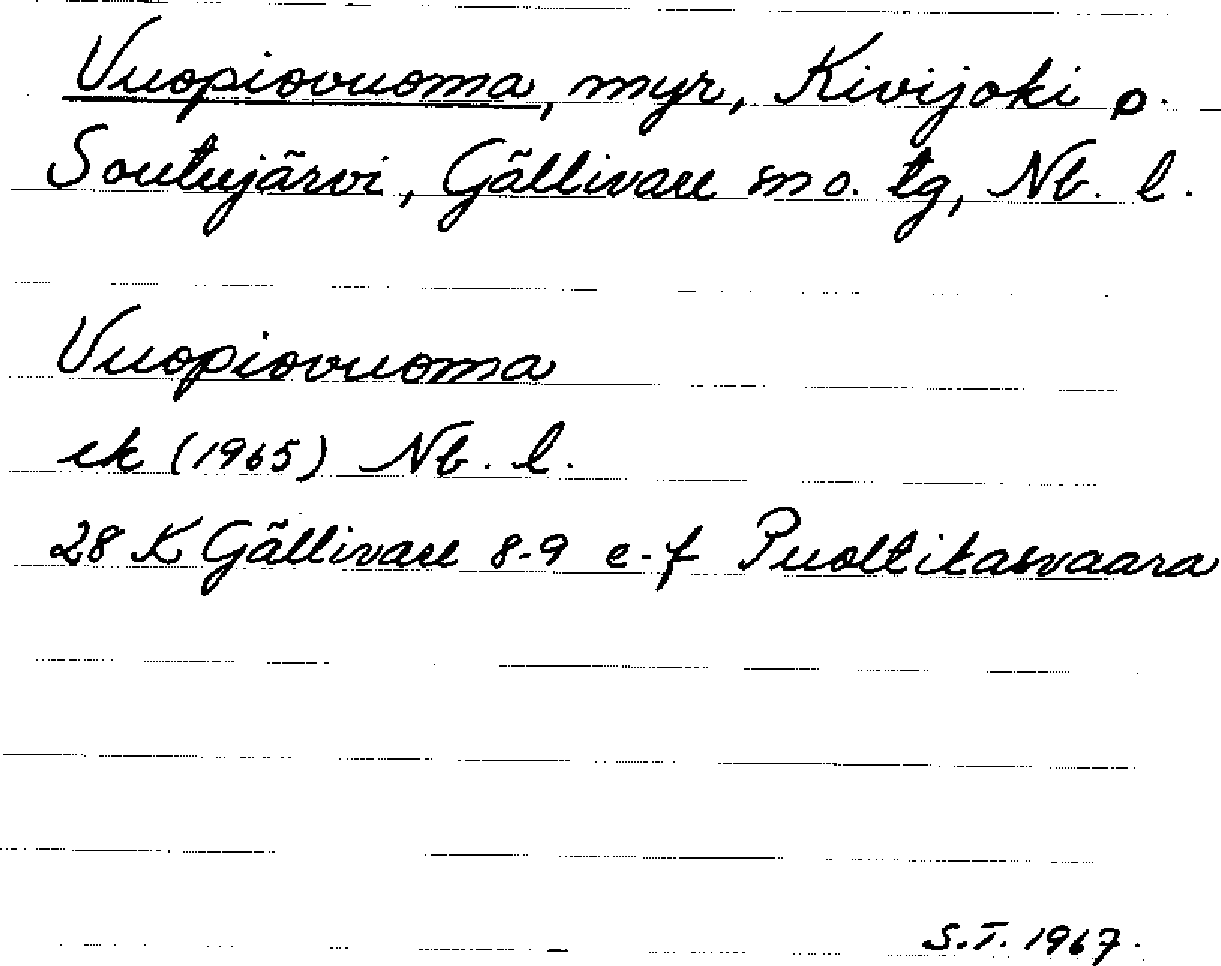 Vuopiovuoma, myr, Kivijoki o.
Soutujärvi, Gällivare sn o. tg, Nb. l.
Vuopiovuoma
ek (1965) Nb. l.
28 K Gällivare 8-9 e-f Puoltikasvaara
S.T. 1967.